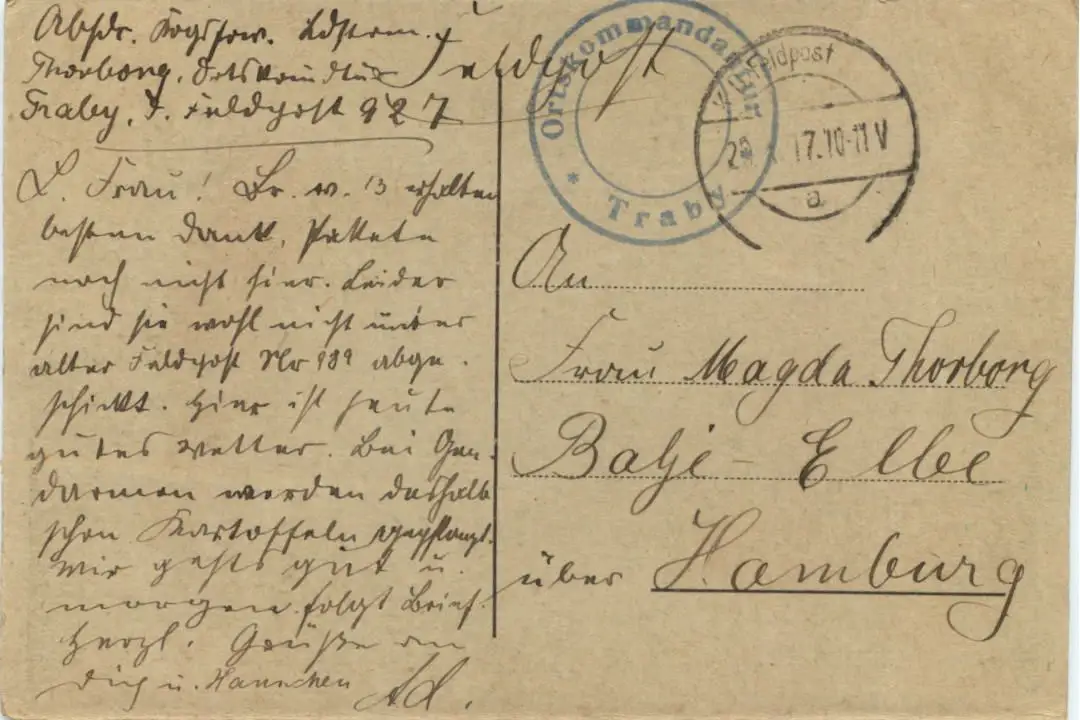 Absdr. Kogsfrw. Ldstrm.
Thorborg, Ortskmdtur
Traby, D. Feldpost 927
Feldpost
Ortskommandantur
* Traby *
Feldpost
17.10-11 V
a
L. Frau! Br. v. 13 erhalten
besten Dank, Pakete
noch nicht hier. Leider
sind sie wohl nicht unter
alter Feldpost No 989 abge-
schickt. Hier ist heute
gutes Wetter. Bei Gen-
darmen werden deshalb
schon Kartoffeln gepflanzt.
Mir gehts gut u.
morgen folgt Brief.
Herzl. Grüße an
Dich u. Hannchen
Ad.
An
Frau Magda Thorborg
Balje - Elbe
über Hamburg